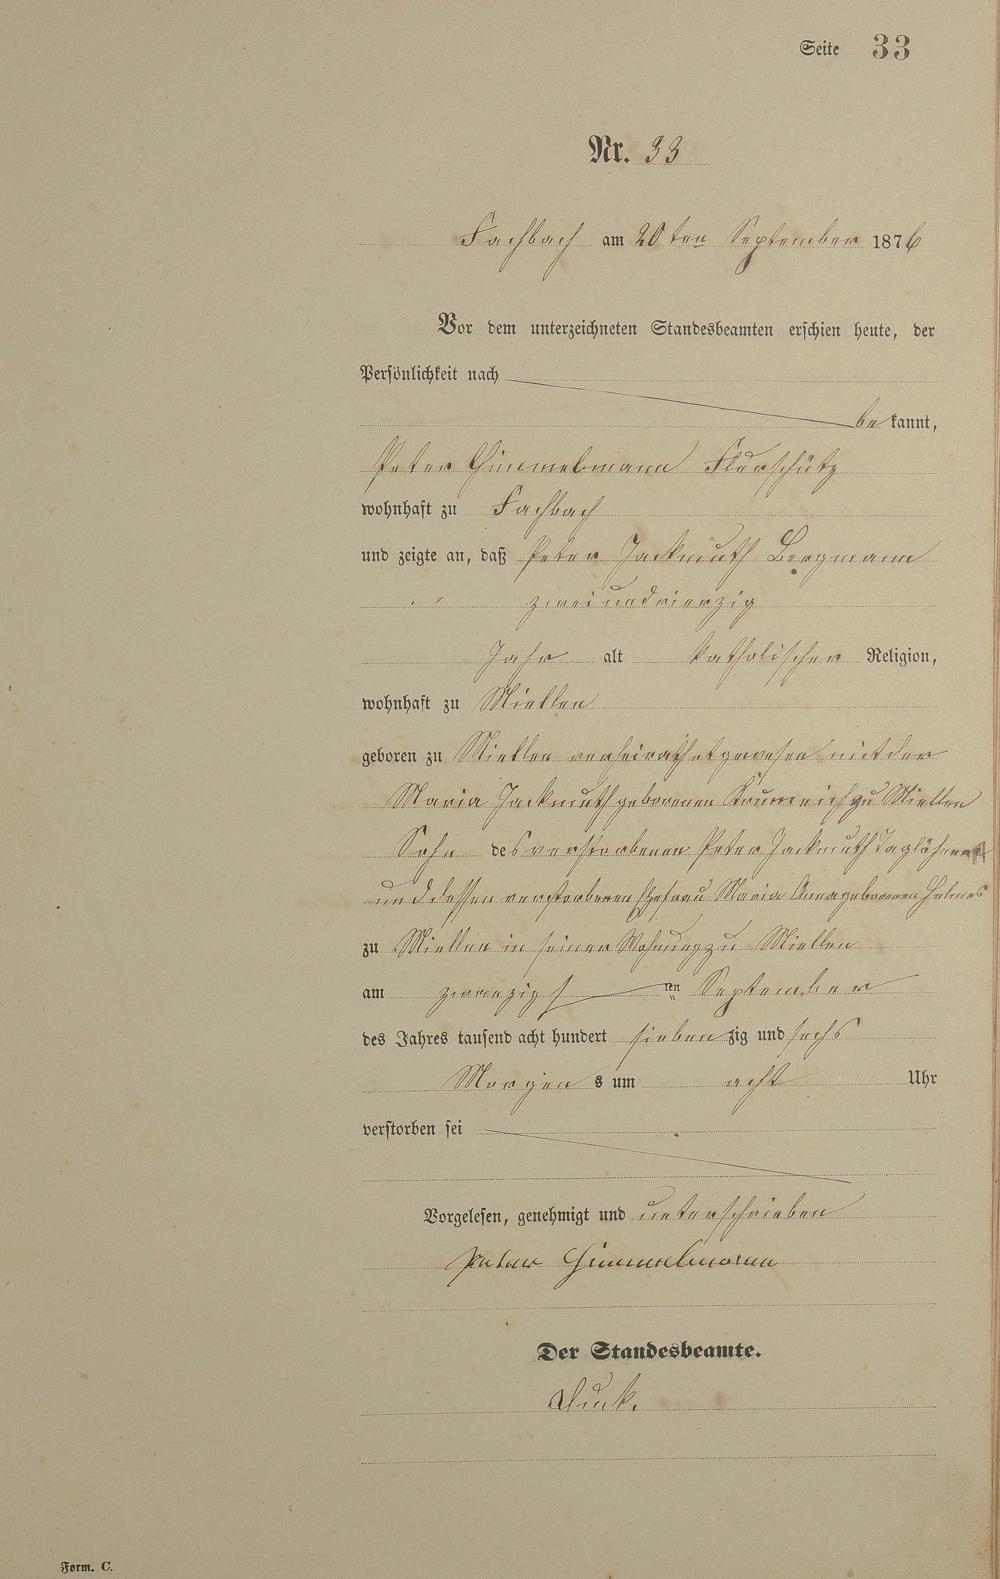 Seite 33
Nr. 33
Fachbach am 20ten September 1876
Vor dem unterzeichneten Standesbeamten erschien heute, der
Persönlichkeit nach
bekannt,
Peter Himmelmann Flurschütz
wohnhaft zu Fachbach
und zeigte an, daß Peter Jackmuth Bergmann
zweiundvierzig
Jahr alt katholischer Religion,
wohnhaft zu Miellen
geboren zu Miellen verheirathet gewesen mit der
Maria Jackmuth geborenen zu Miellen
Sohn des verstorbenen Peter Jackmuth Taglöhner
und dessen verstorbenen Ehefrau Maria Anna geborenen
zu Miellen in seiner Wohnung zu Miellen
am zwanzigsten September
des Jahres tausend acht hundert siebenzig und sechs
Morgens um acht Uhr
verstorben sei
Vorgelesen, genehmigt und unterschrieben
Peter Himmelmann
Der Standesbeamte.
Form. C.